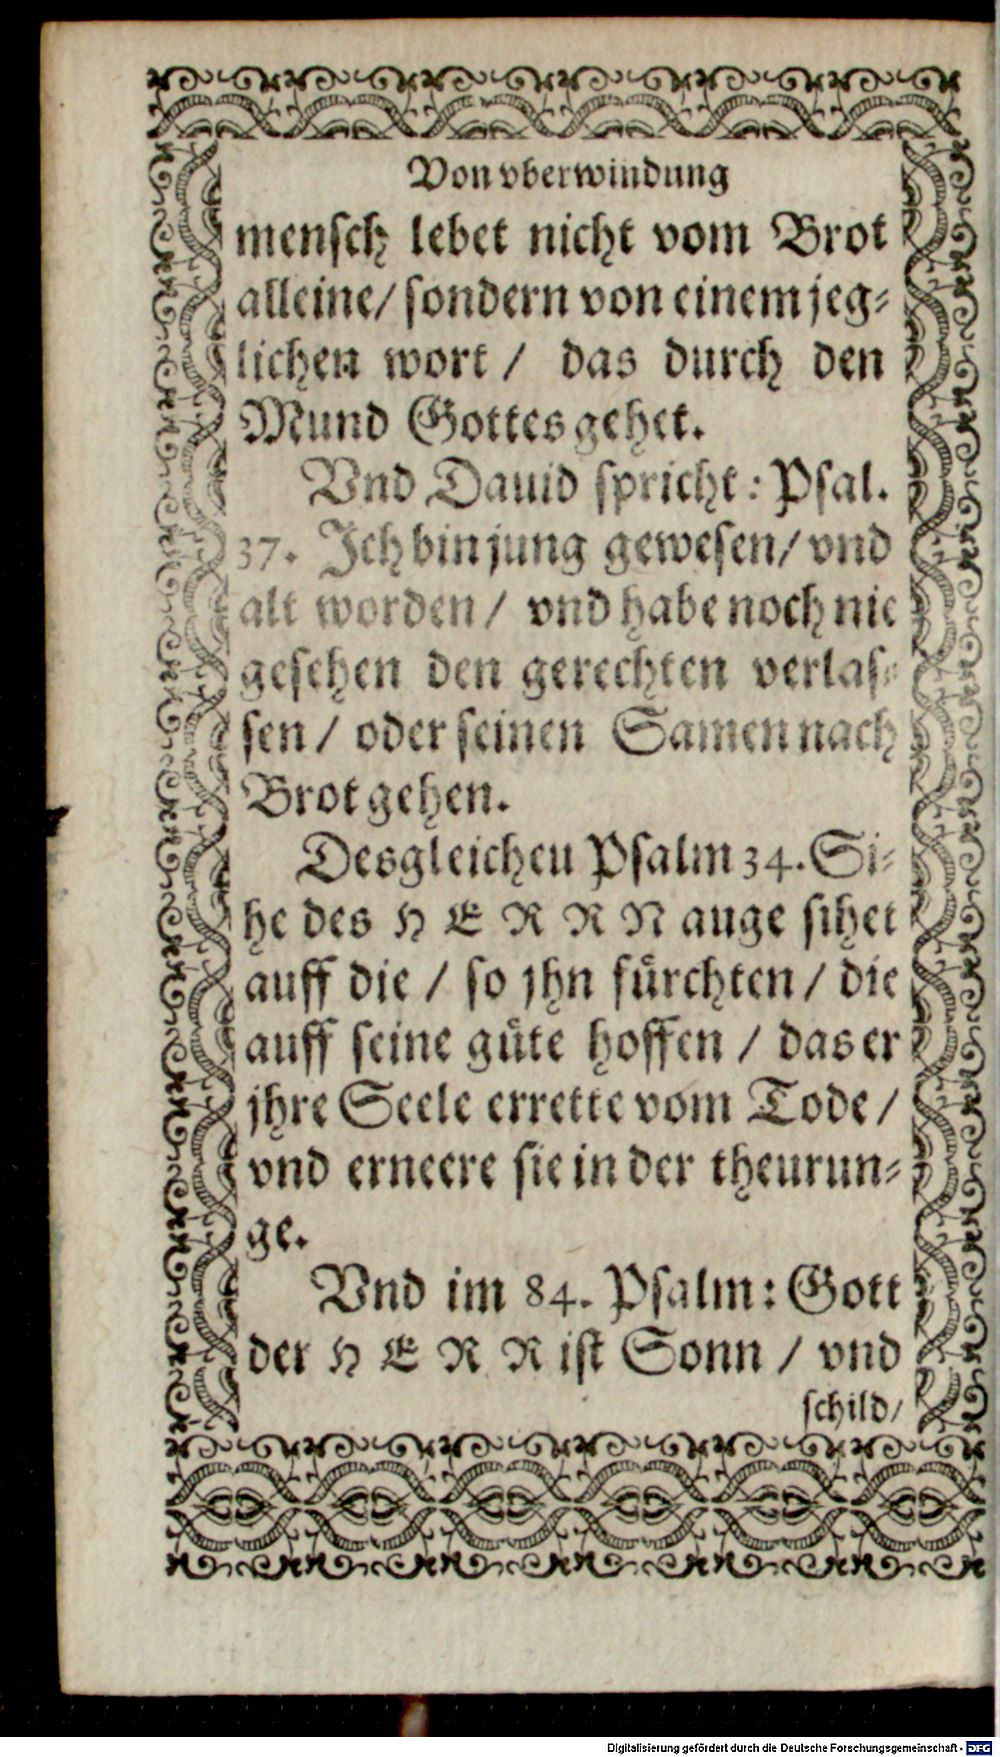 Von vberwindung
menſch lebet nicht vom Brot
alleine/ ſondern von einem jeg⸗
lichen wort / das durch den
Mund Gottes gehet.
Vnd Dauid ſpricht: Pſal.
37. Ich bin jung geweſen/ vnd
alt worden / vnd habe noch nie
geſehen den gerechten verlaſ⸗
ſen / oder ſeinen Samen nach
Brot gehen.
Desgleicheu Pſalm 34. Si⸗
he des H E R R N auge ſihet
auff die / ſo jhn fuͤrchten / die
auff ſeine guͤte hoffen / das er
jhre Seele errette vom Tode /
vnd erneere ſie in der theurun⸗
ge.
Vnd im 84. Pſalm: Gott
der H E R R iſt Sonn / vnd
ſchild/
Digitalisierung gefördert durch die Deutsche Forschungsgemeinschaft - DFG